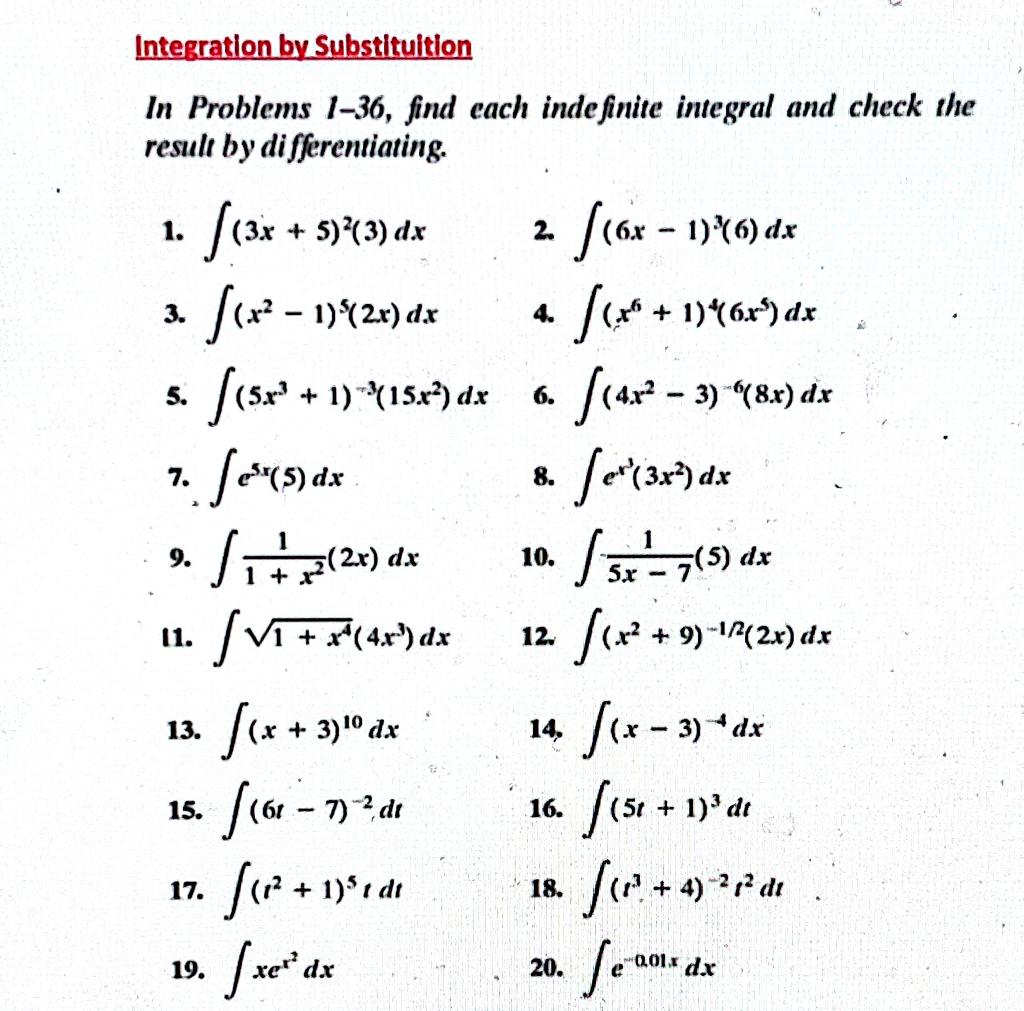 Integration by Substituition
In Problems 1–36, find each indefinite integral and check the
result by differentiating.
1. ∫(3x + 5)²(3) dx 2. ∫(6x − 1)³(6) dx
3. ∫(x² − 1)⁵(2x) dx 4. ∫(x⁶ + 1)⁴(6x⁵) dx
5. ∫(5x³ + 1)⁻³(15x²) dx 6. ∫(4x² − 3)⁻⁶(8x) dx
7. ∫e⁵ˣ(5) dx 8. ∫e^(x³)(3x²) dx
9. ∫ 1/(1 + x²) (2x) dx 10. ∫ 1/(5x − 7) (5) dx
11. ∫√(1 + x⁴)(4x³) dx 12. ∫(x² + 9)^(−1/2)(2x) dx
13. ∫(x + 3)¹⁰ dx 14. ∫(x − 3)⁻⁴ dx
15. ∫(6t − 7)⁻² dt 16. ∫(5t + 1)³ dt
17. ∫(t² + 1)⁵ t dt 18. ∫(t³ + 4)⁻² t² dt
19. ∫xe^(x²) dx 20. ∫e^(−0.01x) dx